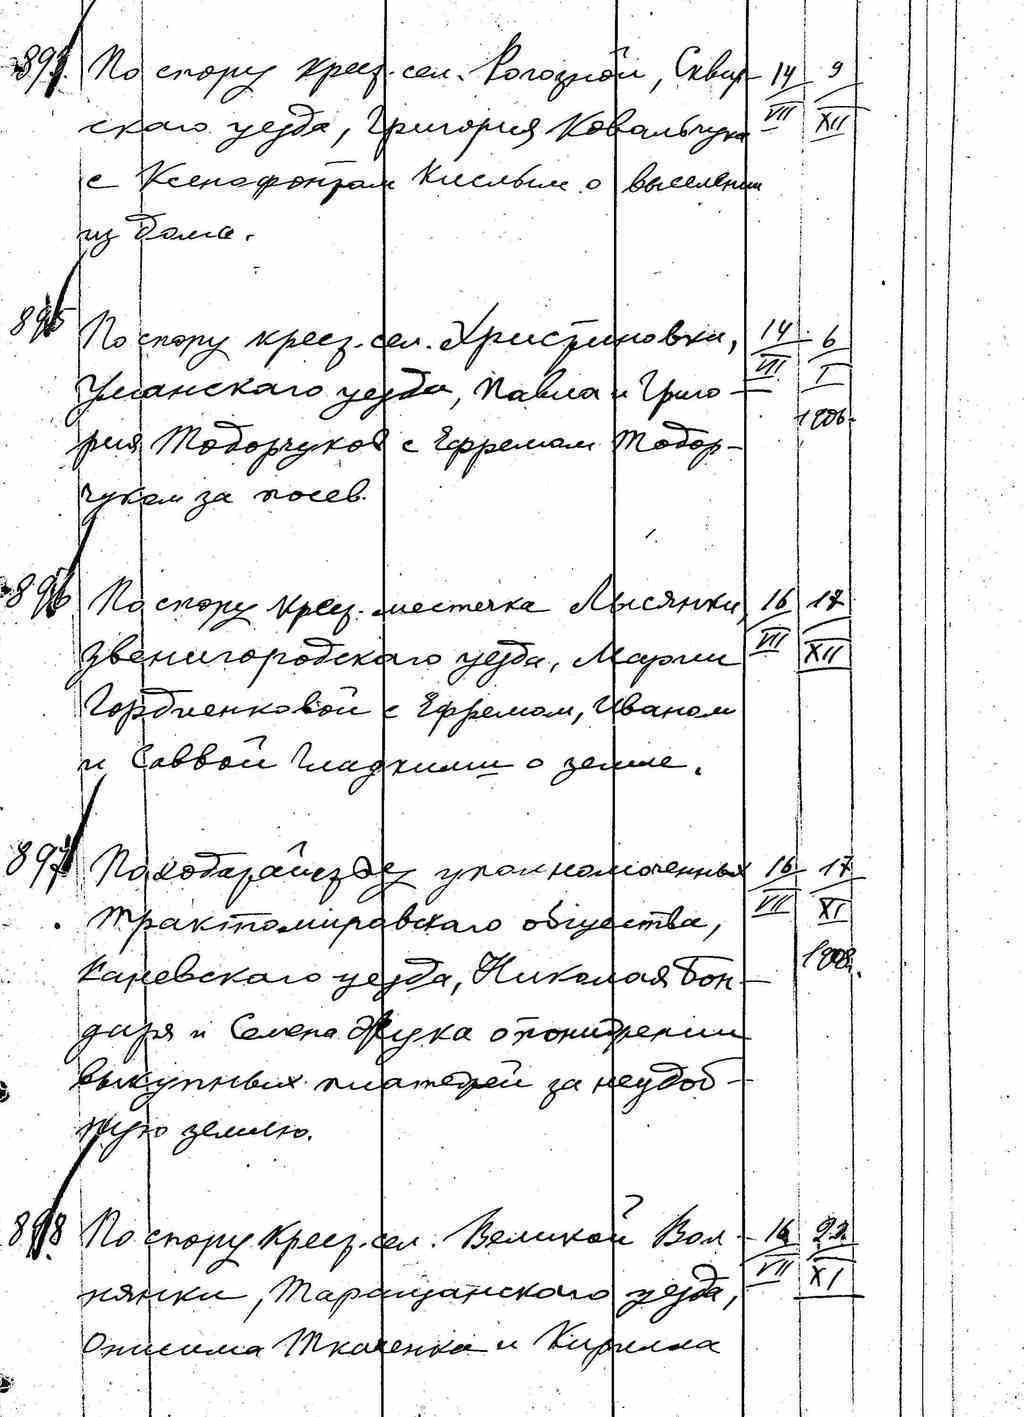 По спору крест. сел. Рогозной, Сквир- 14 9
скаго уезда, Григория Ковальчука VII XII
с Ксенофонтом Кислым о выселении
из дома.
895 По спору крест. сел. Христиновки, 14 6
Уманскаго уезда, Павла и Григо- VII I
рия Тодорчуков с Ефремом Тодор- 1906
чуком за посев.
896 По спору крест. местечка Лысянки, 16 17
Звенигородскаго уезда, Марии VII XII
Гордиенковой с Ефремом, Иваном
и Саввой Гладкими о земле.
897 По уполномоченных 16 17
Трактомировскаго общества, VII XI
Каневскаго уезда, Николая Бон-
даря и Семена Жука о понижении
выкупных платежей за неудоб-
ную землю.
898. По спору крест. сел. Великой Вол- 16 22
нянки, Таращанскаго уезда, VII XI
Онисима Ткаченка и Кирилла